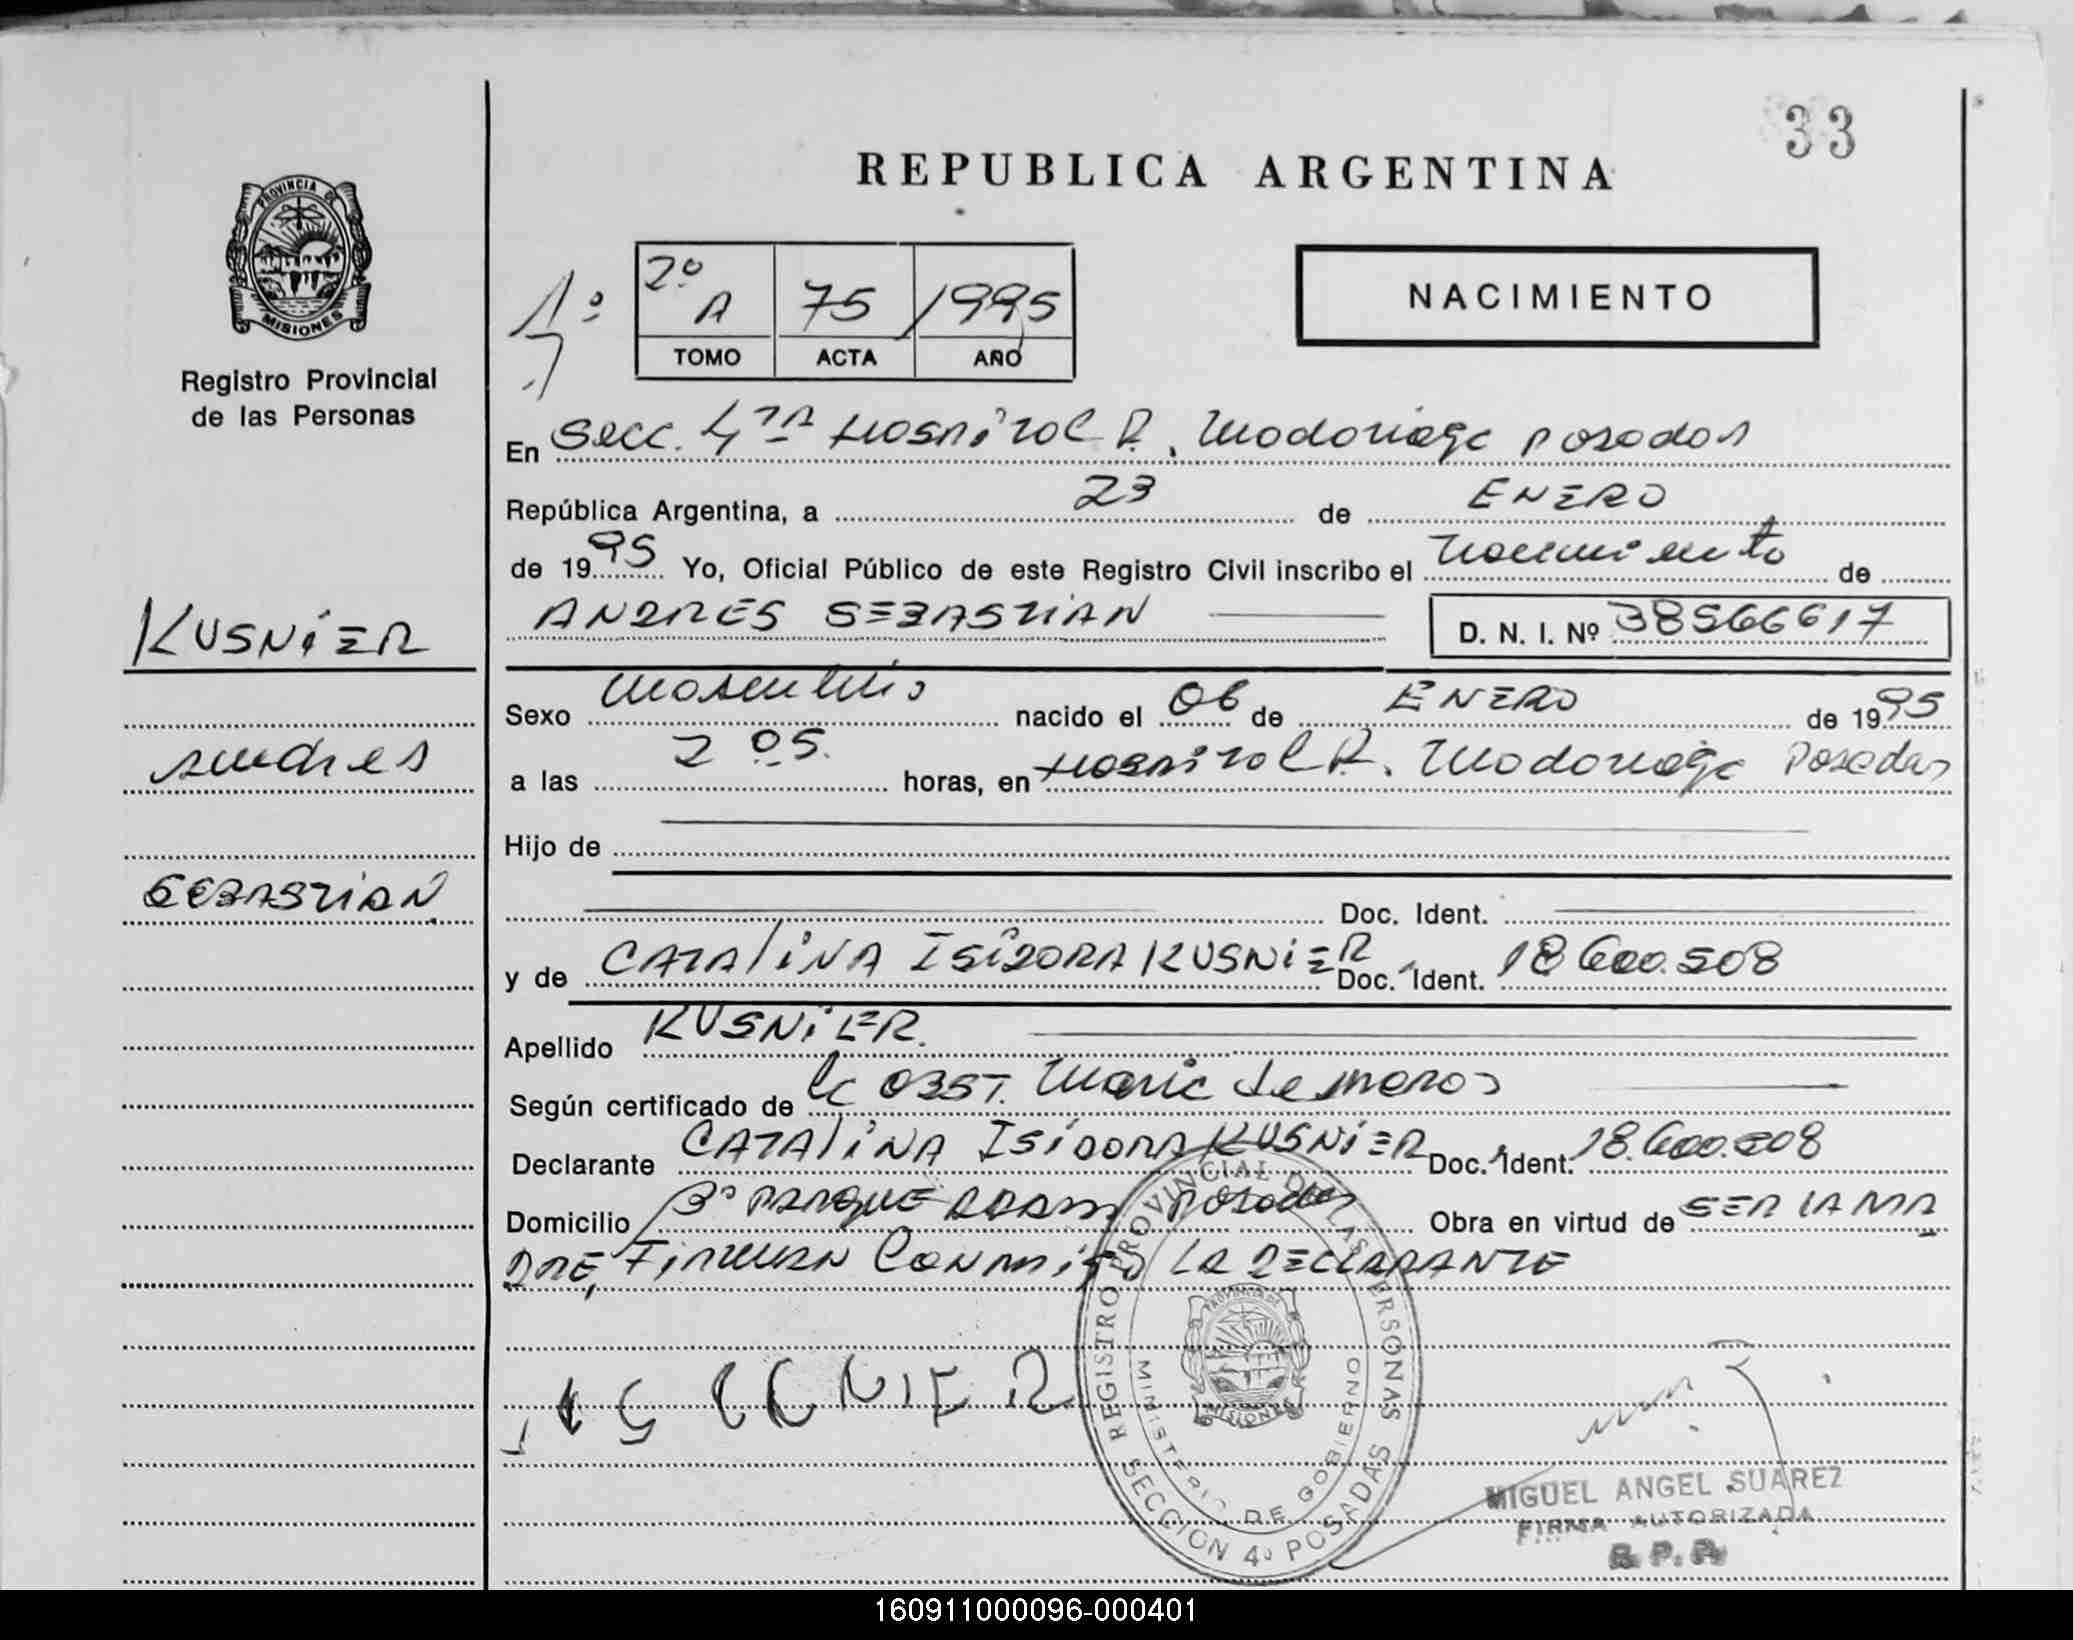 33
REPUBLICA ARGENTINA
PROVINCIA DE
MISIONES
Registro Provincial
de las Personas
1º
2º
A 75 1995
TOMO ACTA AÑO
NACIMIENTO
En Secc. 4TA Hospital R. Madariaga Posadas
República Argentina, a 23 de ENERO
de 1995 Yo, Oficial Público de este Registro Civil inscribo el Nacimiento de
KUSNiER
ANDRES SEBASTIAN D. N. I. Nº 38566617
Sexo Masculino nacido el 06 de ENERO de 1995
Andres
a las 2 05. horas, en Hospital R. Madariaga Posadas
Hijo de
SEBASTIAN
Doc. Ident.
y de CATAliNA ISiDORA KUSNiER Doc. Ident. 18.600.508
Apellido KUSNiER.
Según certificado de la OBST. Maria
Declarante CATAliNA ISiDORA KUSNiER Doc. Ident. 18.600.508
Domicilio Bº PARQUE ADAM Posadas Obra en virtud de SER LA MA
DRE, FiRMAN CONMiGO LA DECLARANTE
REGISTRO PROVINCIAL DE LAS PERSONAS
MINISTERIO DE GOBIERNO
MISIONES
SECCION 4ª POSADAS
MIGUEL ANGEL SUAREZ
FIRMA AUTORIZADA
R. P. P.
160911000096-000401